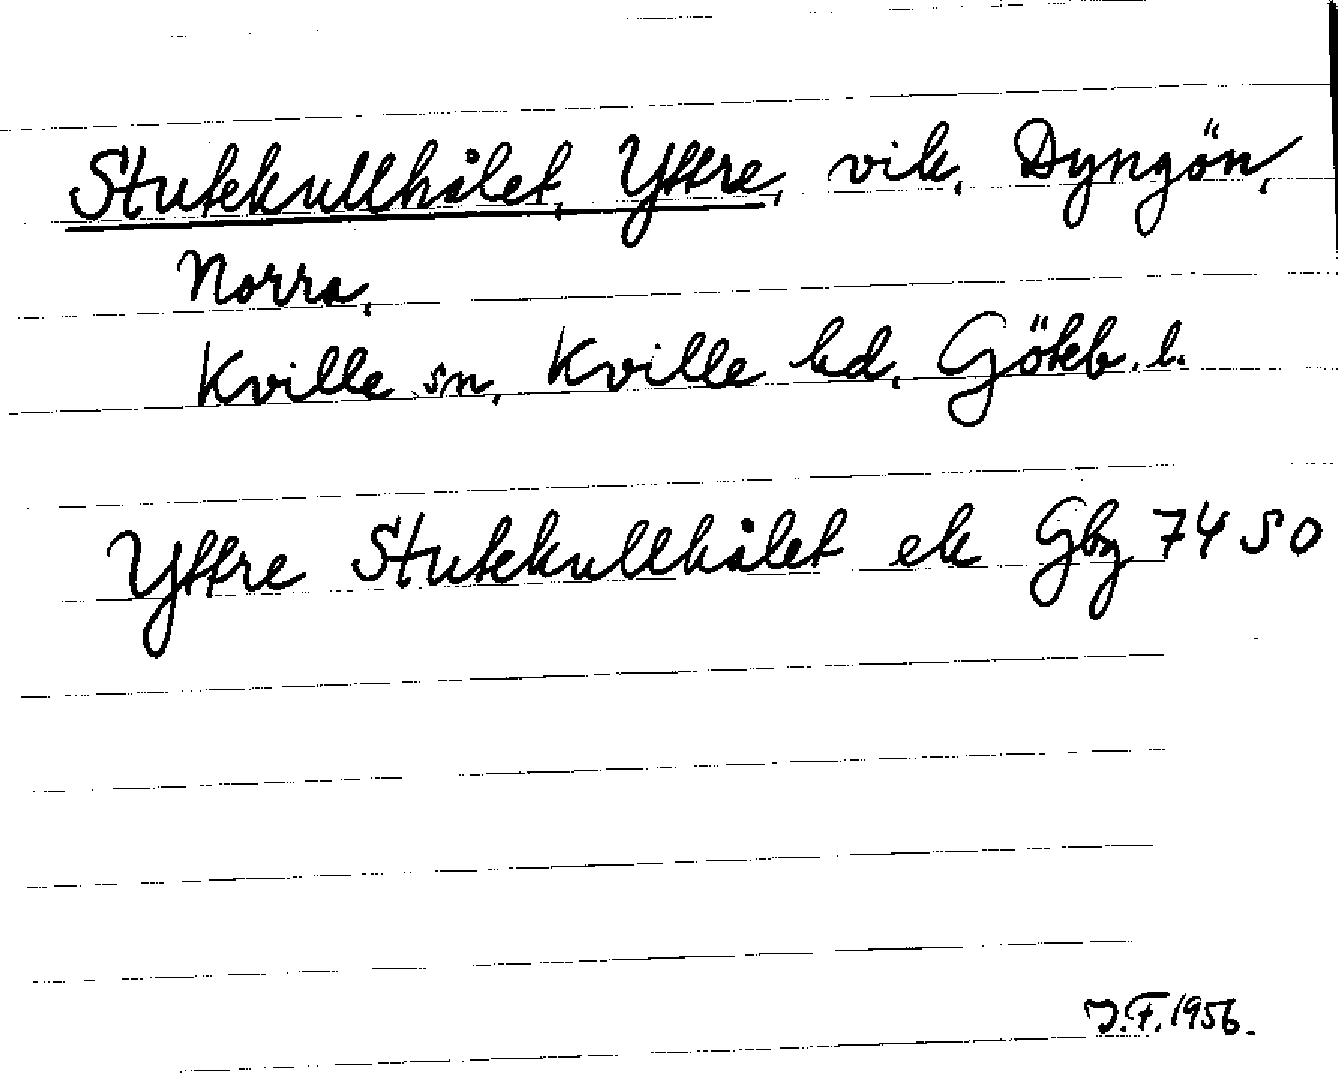 Stutekullhålet, Yttre, vik, Dyngön,
Norra,
Kville sn, Kville hd, Göteb. l.
Yttre Stutekullhålet ek Gbg 74 SO
J.F. 1956.